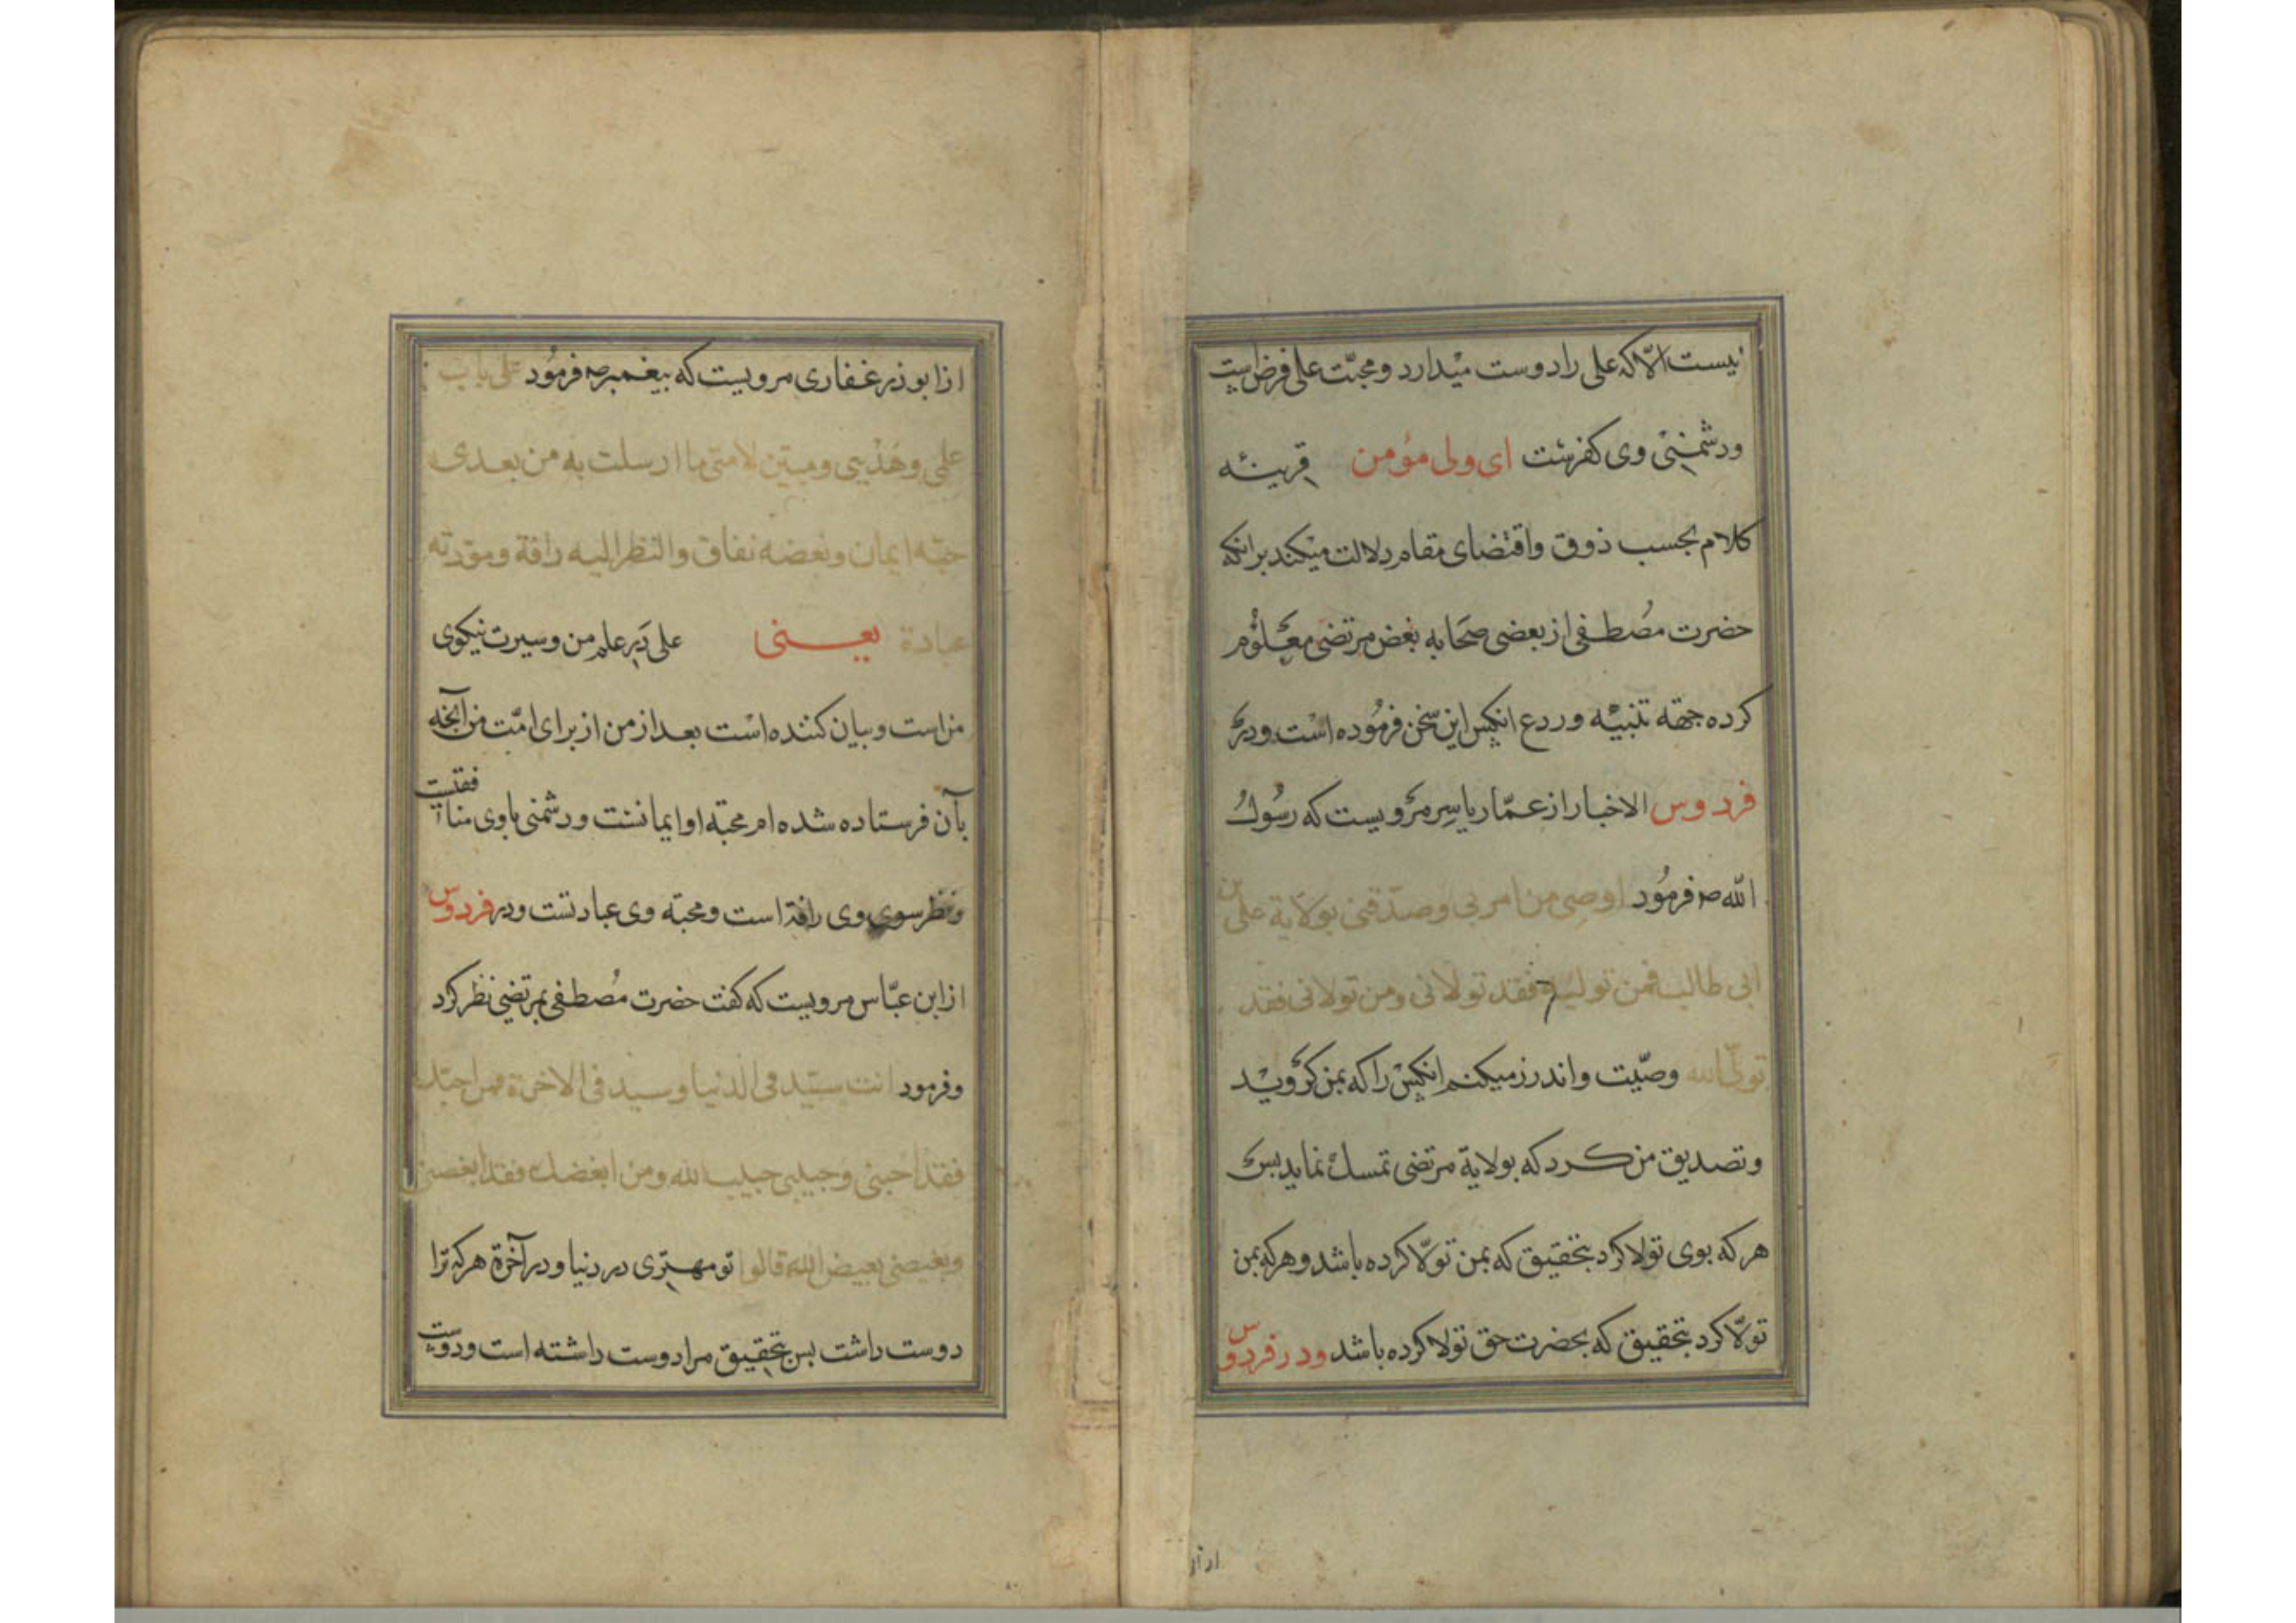 نیست الّا که علی را دوست میدارد و محبّت علی فرض است
و دشمنیٔ وی کفرست ای ولی مؤمن قرینهٔ
کلام بحسب ذوق و اقتضای مقام دلالت میکند بر انکه
حضرت مصُطفی از بعضی صحَابه بغض مرتضی معلوُم
کرده جهة تنبیه و ردع انکس این سخن فرموُده است و در
فردوس الاخبار از عمّار یاسِر مرویست که رسُول
الله صـ فرمُود اوصی من امن بی وصدّقنی بولایة علی بن
ابی طالب فمن تولیه فقد تولانی ومن تولانی فقد
تولّی الله وصیّت و اندرز میکنم انکس را که بمن کرویْد
و تصدیق من کرد که بولایة مرتضی تمسك نماید بس
هر که بوی تولا کرد بتحقیق که بمن تولّا کرده باشد و هر که بمن
تولّا کرد بتحقیق که بحضرت حق تولا کرده باشد و در فردوس
از ابو ذر غفاری مرویست که پیغمبر صـ فرموُد علی باب
علمی وهَدْیی ومبیّن لامتی ما ارسلت به من بعدی
حبّه ایمان وبغضه نفاق والنظر الیه رافة ومودّته
عبادة یعنی علی دَرِ علم من و سیرت نیکوی
من است و بیان کننده است بعد از من از برای امّت من آنچه
بآن فرستاده شده ام محبّة او ایمانست و دشمنی باوی منافقتست
و نظر سوی وی رافة است و محبّه وی عبادتست و در فردوس
از ابن عبّاس مرویست که کفت حضرت مُصطفی بمرتضی نظر کرد
و فرمود انت سیّد فی الدنیا وسید فی الاخرة من احبّك
فقد احبنی وحبیبی حبیب الله ومن ابغضك فقد ابغضنی
وبغیضی بغیض الله قالوا تو مهتری در دنیا و در آخرة هر که ترا
دوست داشت بس بتحقیق مرا دوست داشته است و دوست